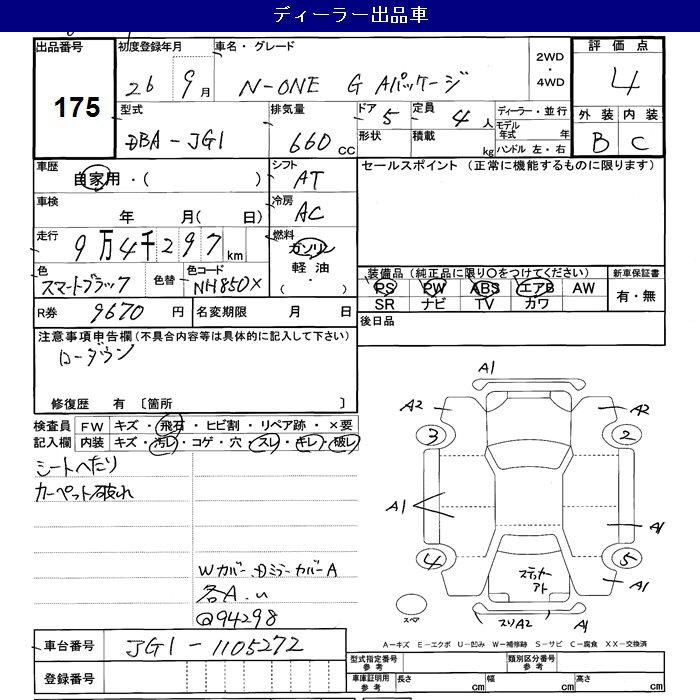 ディーラー出品車
出品番号 175
初度登録年月 26年 9月
車名・グレード N-ONE G Aパッケージ
2WD・4WD
評価点 4
外装 B 内装 C
型式 DBA-JG1
排気量 660cc
ドア 5
形状
定員 4人
積載 kg
ディーラー・並行
モデル年式 年
ハンドル 左・右
車歴 自家用・( )
シフト AT
セールスポイント (正常に機能するものに限ります)
車検 年 月( 日)
冷房 AC
走行 9万4千297km
燃料 ガソリン
軽油
( ・ )
色 スマートブラック
色替
色コード NH850X
装備品(純正品に限り○をつけてください)
PS PW ABS エアB AW
SR ナビ TV カワ
新車保証書
有・無
R券 9670円
名変期限 月 日
後日品
注意事項申告欄(不具合内容等は具体的に記入して下さい)
ローダウン
修復歴 有 〔箇所 〕
検査員記入欄
FW キズ・飛石・ヒビ割・リペア跡・×要
内装 キズ・汚レ・コゲ・穴・スレ・キレ・破レ
シートへたり
カーペット破れ
Wカバー、Dミラーカバー A
各A.u
@94298
A1
A2
A2
3
2
A1
A1
4
5
A1
ステッカーアト
スペア
スリA2
A1
A-キズ E-エクボ U-凹み W-補修跡 S-サビ C-腐食 XX-交換済
車台番号 JG1-1105272
登録番号
型式指定番号 参考
類別区分番号 参考
車庫証明用 参考
長さ cm
幅 cm
高さ cm